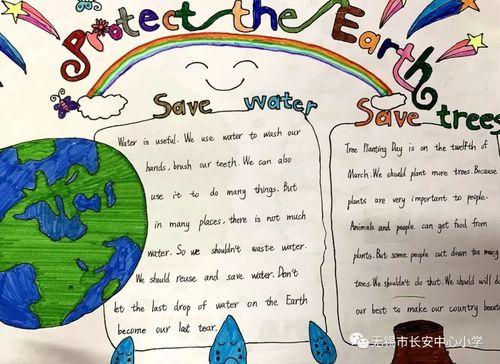 Protect the Earth
Save water
Water is useful. We use water to wash our
hands, brush our teeth. We can also
use it to do many things. But
in many places, there is not much
water. So we shouldn't waste water.
We should reuse and save water. Don't
let the last drop of water on the Earth
become our last tear.
Save trees
Tree Planting Day is on the twelfth of
March. We should plant more trees. Because
plants are very important to people.
Animals and people can get food from
plants. But some people cut down too many
trees. We shouldn't do that. We should will do
our best to make our country beauti
无锡市长安中心小学